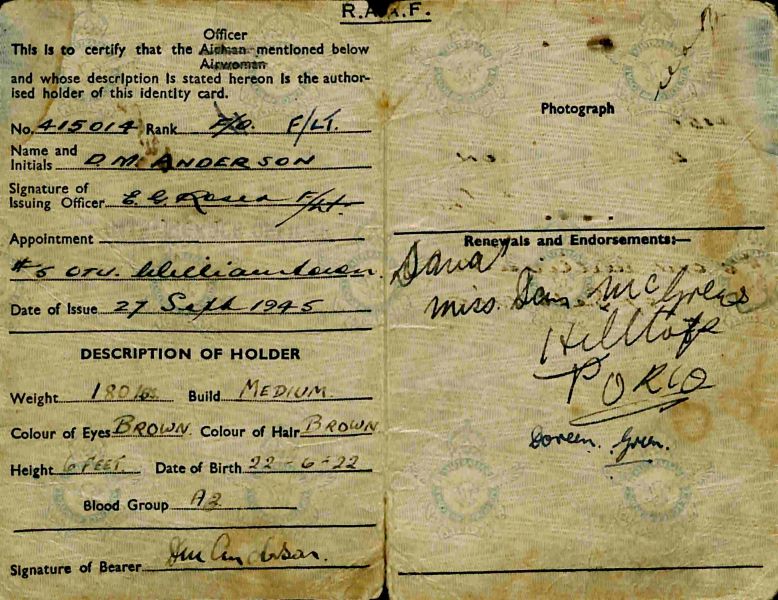 R.A.A.F.
Officer
This is to certify that the Airman mentioned below
Airwoman
and whose description is stated hereon is the author-
ised holder of this identity card.
No. 415014 Rank F/O. F/LT.
Name and
Initials D.M. ANDERSON
Signature of
Issuing Officer E. G. F/Lt.
Appointment
#5 OTU. Williamtown.
Date of Issue 27 Sept 1945
DESCRIPTION OF HOLDER
Weight 180 lbs. Build MEDIUM.
Colour of Eyes BROWN. Colour of Hair BROWN
Height 6 FEET. Date of Birth 22-6-22
Blood Group A2
Signature of Bearer DM Anderson.
Photograph
Renewals and Endorsements:—
Miss.
Hilltop
PORLO
Doreen. Green.